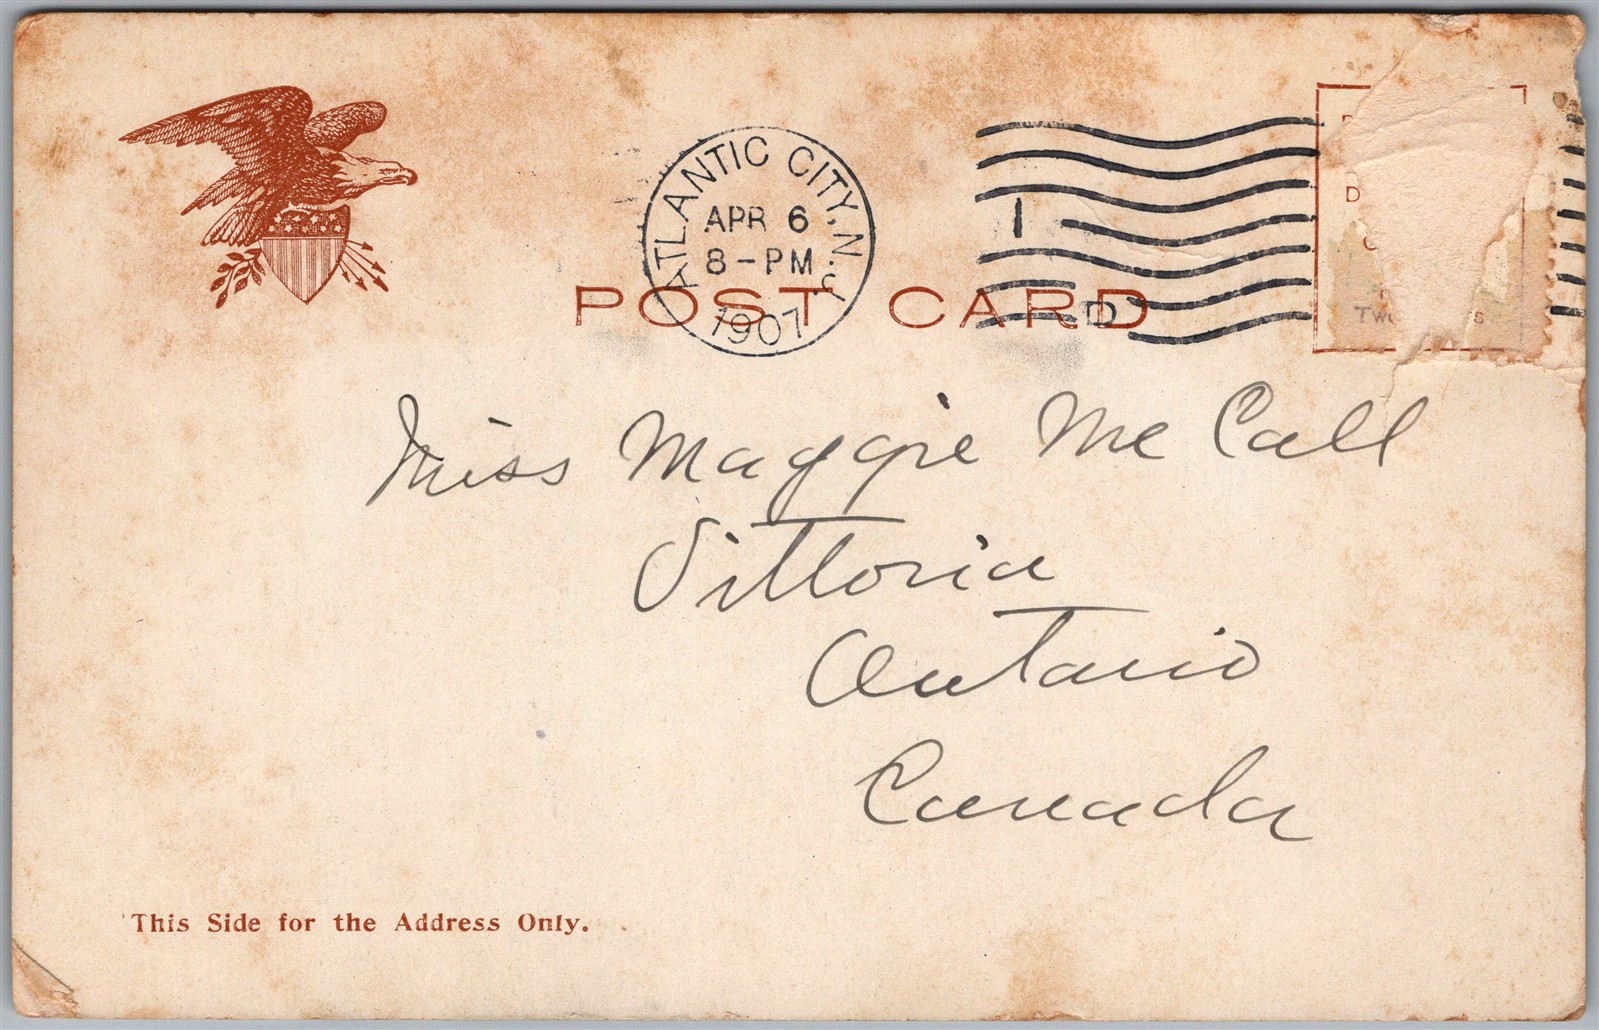 ATLANTIC CITY, N.J.
APR 6
8-PM
1907
1
D
POST CARD
Miss Maggie Mc Call
Vittoria
Ontario
Canada
This Side for the Address Only.